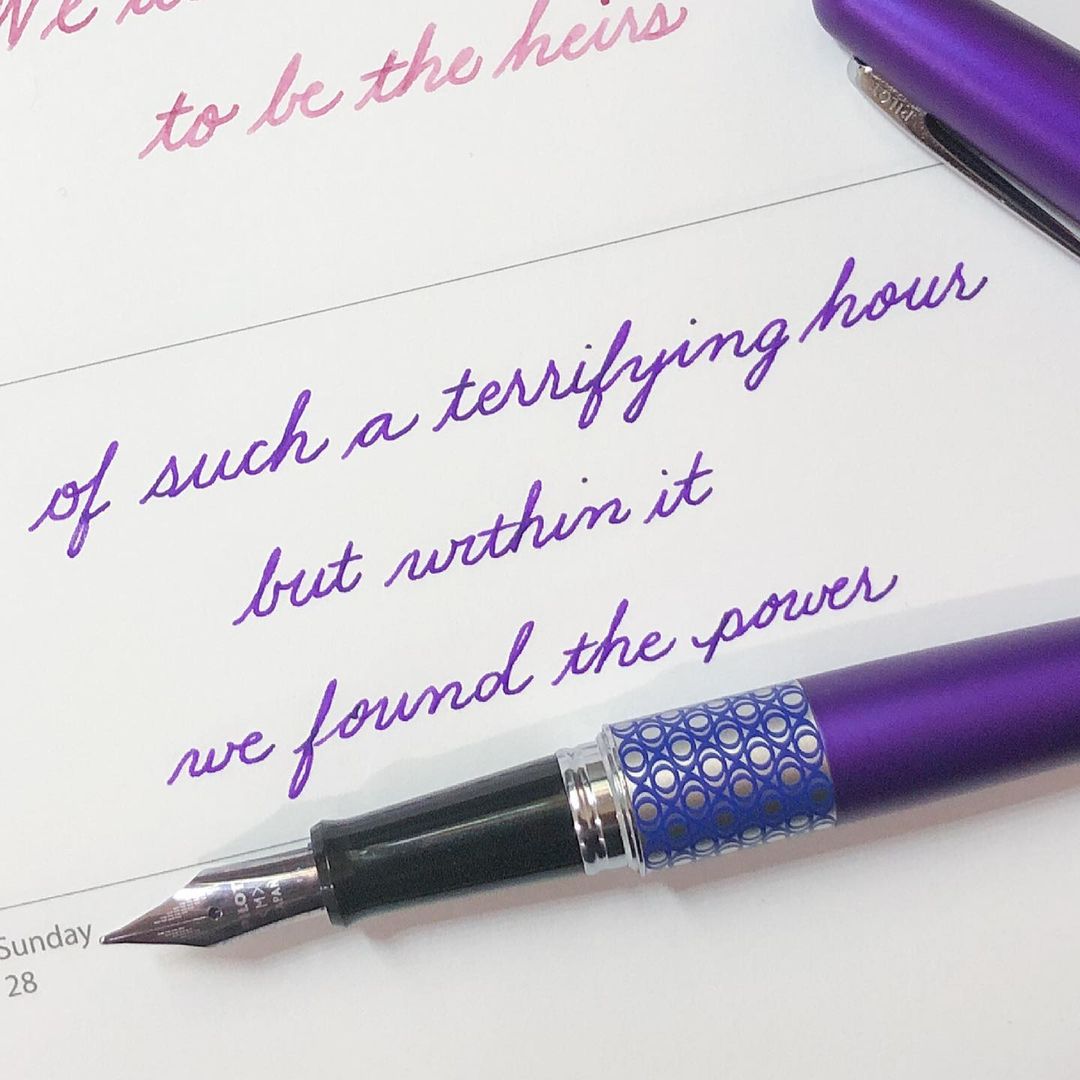 We
to be the heirs
PILOT
of such a terrifying hour
but within it
we found the power
PILOT
JAPAN
Sunday
28